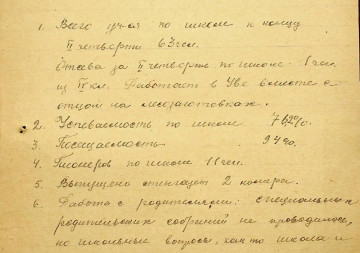 1. Всего уч-ся по школе к концу
II четверти 63 чел.
Отсева за II четверть по школе - 1 чел.
из IV кл. Работает в Уве вместе с
отцом на лесозаготовках.
2. Успеваемость по школе 76,2%.
3. Посещаемость 94%.
4. Пионеров по школе 11 чел.
5. Выпущено стенгазет 2 номера.
6. Работа с родителями: специальных
родительских собраний не проводилось,
но школьные вопросы, как то школа и